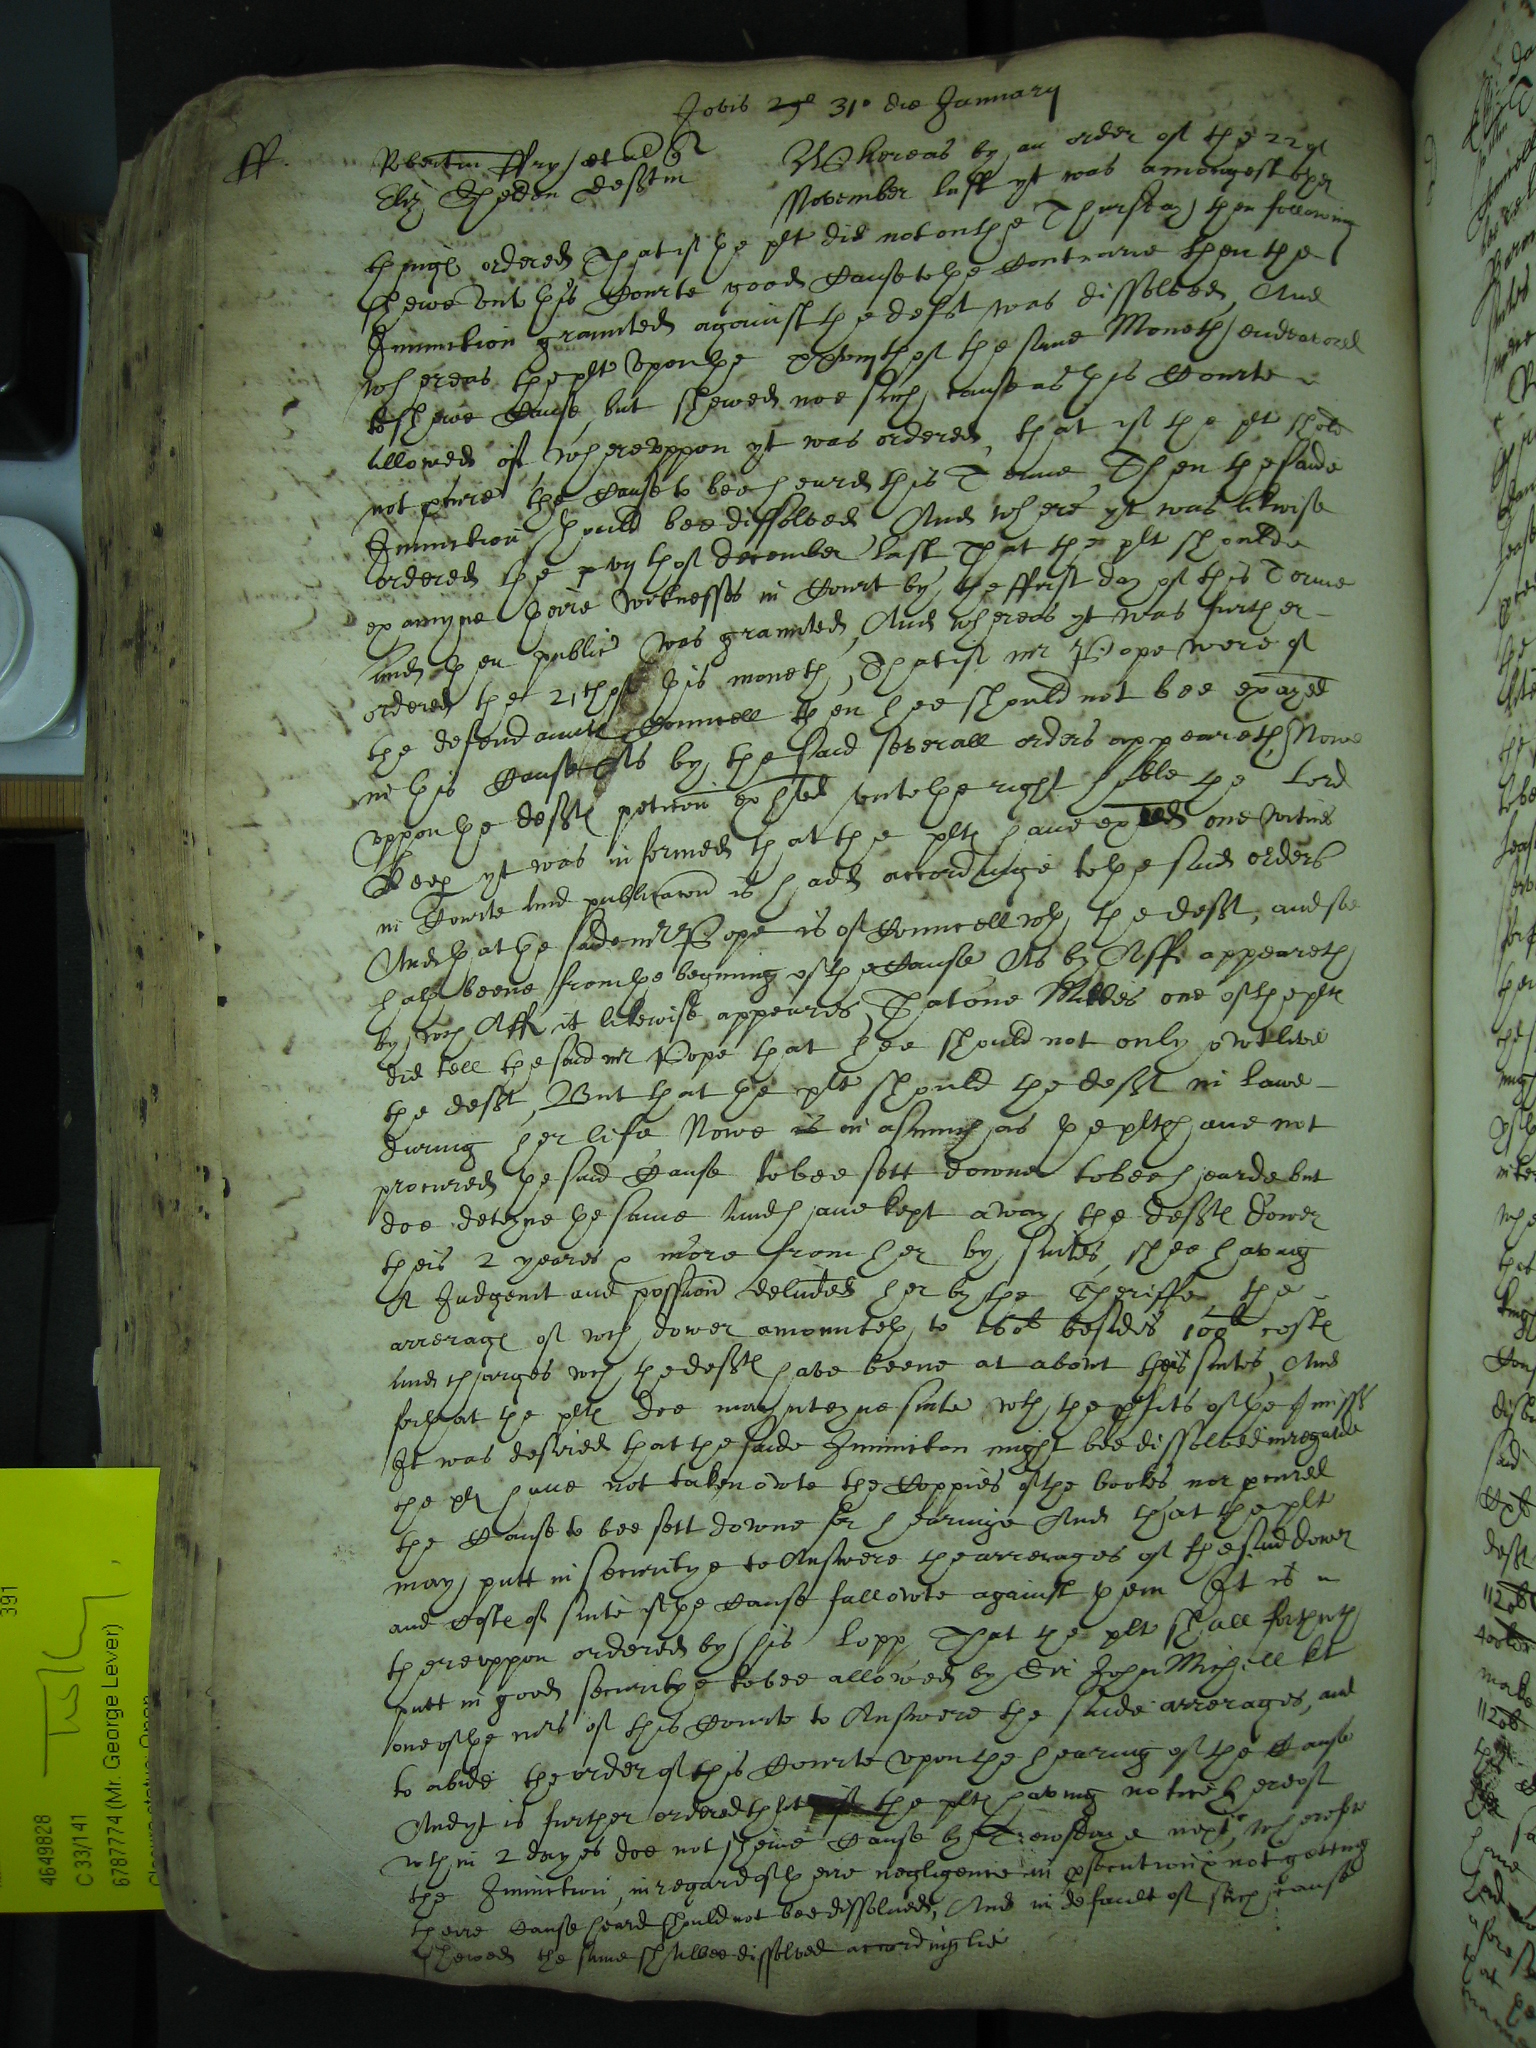 Jovis 31° die January
ff.
Robertm ffry et al qr
Eliz Shelden defftm
Whereas by an order of the 22 of
November last yt was amongest other
things ordered That if the plt did not on the Thursday then following
shewe unto this Courte good Cause to the Contrarie then the
Iniunction graunted against the defft was dissolved, And
whereas the plte upon the xxixth of the same Moneth endeavored
to shewe Cause, but shewed noe such cause as this Courte
allowed of, whereuppon yt was ordered, that if the plt shold
not pcure the Cause to bee heard this Terme, Then the saide
Iniunction should bee dissolved And where yt was likwise
ordered the xvijth of december last That the plt should
examyne theire wittnesses in Court by the ffirst day of this Terme
And then public was graunted, And whereas yt was further
ordered the 21th of this moneth, That if mr Pope were of
the defendaunts Councell then hee should not bee exayed
in this Cause As by the said severall orders appeareth, Nowe
uppon the deffts peticon exhited unto the right hoble the Lord
Keep yt was informed that the plts have exed one witnes
in Courte and publicacon is hadd accordinge to the said orders
And that the saide mr Pope is of Councell wth the defft, and soe
hath beene from the begining of the Cause, As by Aff appeareth
by wch Aff it likewise appeares, That one Milles one of the plts
did tell the said mr Pope that hee should not only owtlive
the defft, But that the plt should the defft in lawe
during her life Nowe in asmuch as the plts have not
procured the said Cause to bee sett downe to bee hearde but
doe deteyne the same And have kept away the deffts dower
theis 2 yeares & more from her by suites, shee having
A Iudgemt and possion delivded her by the Sheriffe the
arrerages of wch dower amounteth to besides 100l costs
And charges wch the deffts have beene at about theis suites, And
for that the plts doe maynteyne suite wth the pfits of the pmiss
It was desired that the saide Iniunction might bee dissolved in regarde
the plts have not taken owte the Coppies of the bookes nor pcured
the Cause to bee sett downe for hearinge And that the plt
may putt in securitye to Answere the arrerages of the said dower
and Costs of suite if the Cause fall owte against them It is
thereuppon ordered by his Lopp That the plt shall forthwth
putt in good securitye to bee allowed by Sir John Michell kt
one of the mrs of this Courte to Answere the saide arrerages, and
to abide the order of this Courte upon the hearing of the Cause
And yt is further ordered that if the plts having notice hereof
wthin 2 dayes doe not shewe Cause by Tewsdaie next, wherefore
the Iniunction, in regard of theire negligence in psecution & not getting
theire Cause heard should not bee dissolved, And in default of such cause
shewed the same shalbee dissolved accordinglie
391
4649828
C 33/141
6787774 (Mr. George Lever)